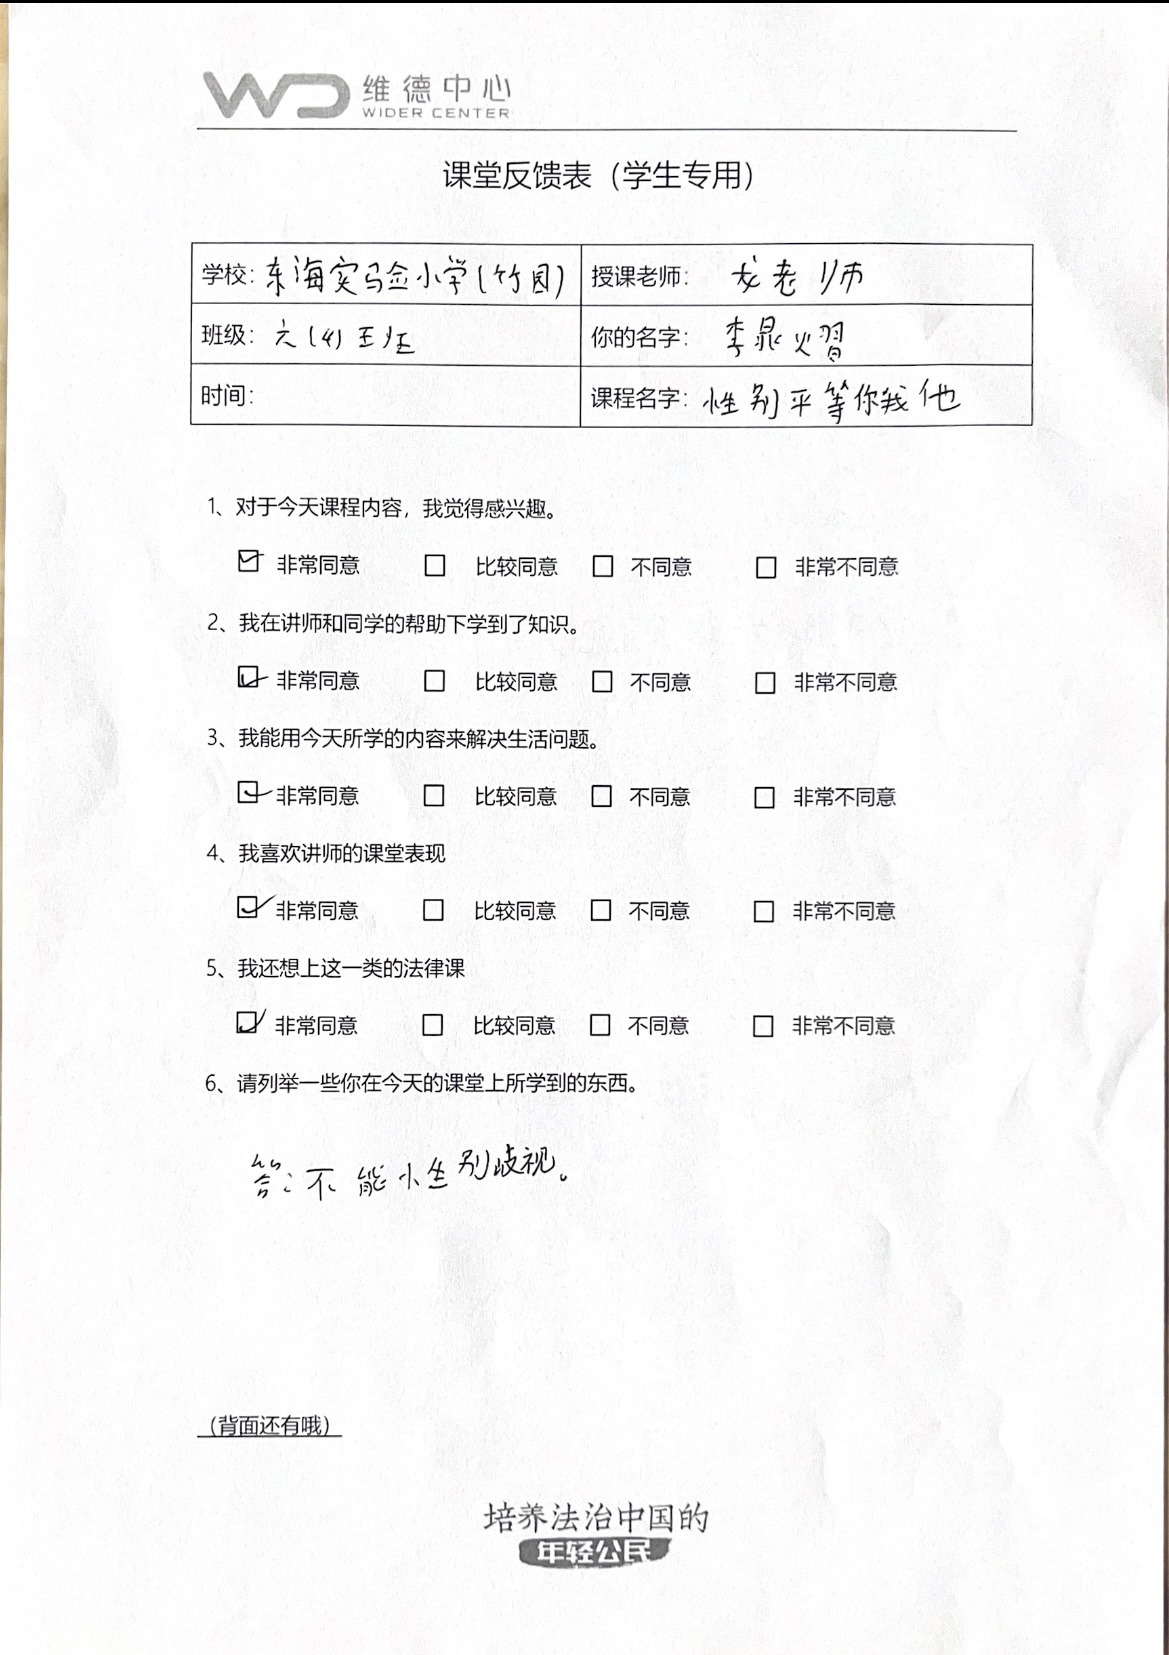 WD 维德中心
WIDER CENTER
课堂反馈表（学生专用）
学校：东海实验小学（竹园） 授课老师： 龙老师
班级：六（4）班 你的名字： 李
时间： 课程名字：性别平等你我他
1、对于今天课程内容，我觉得感兴趣。
☑ 非常同意 □ 比较同意 □ 不同意 □ 非常不同意
2、我在讲师和同学的帮助下学到了知识。
☑ 非常同意 □ 比较同意 □ 不同意 □ 非常不同意
3、我能用今天所学的内容来解决生活问题。
☑ 非常同意 □ 比较同意 □ 不同意 □ 非常不同意
4、我喜欢讲师的课堂表现
☑ 非常同意 □ 比较同意 □ 不同意 □ 非常不同意
5、我还想上这一类的法律课
☑ 非常同意 □ 比较同意 □ 不同意 □ 非常不同意
6、请列举一些你在今天的课堂上所学到的东西。
答：不能性别歧视。
（背面还有哦）
培养法治中国的
年轻公民